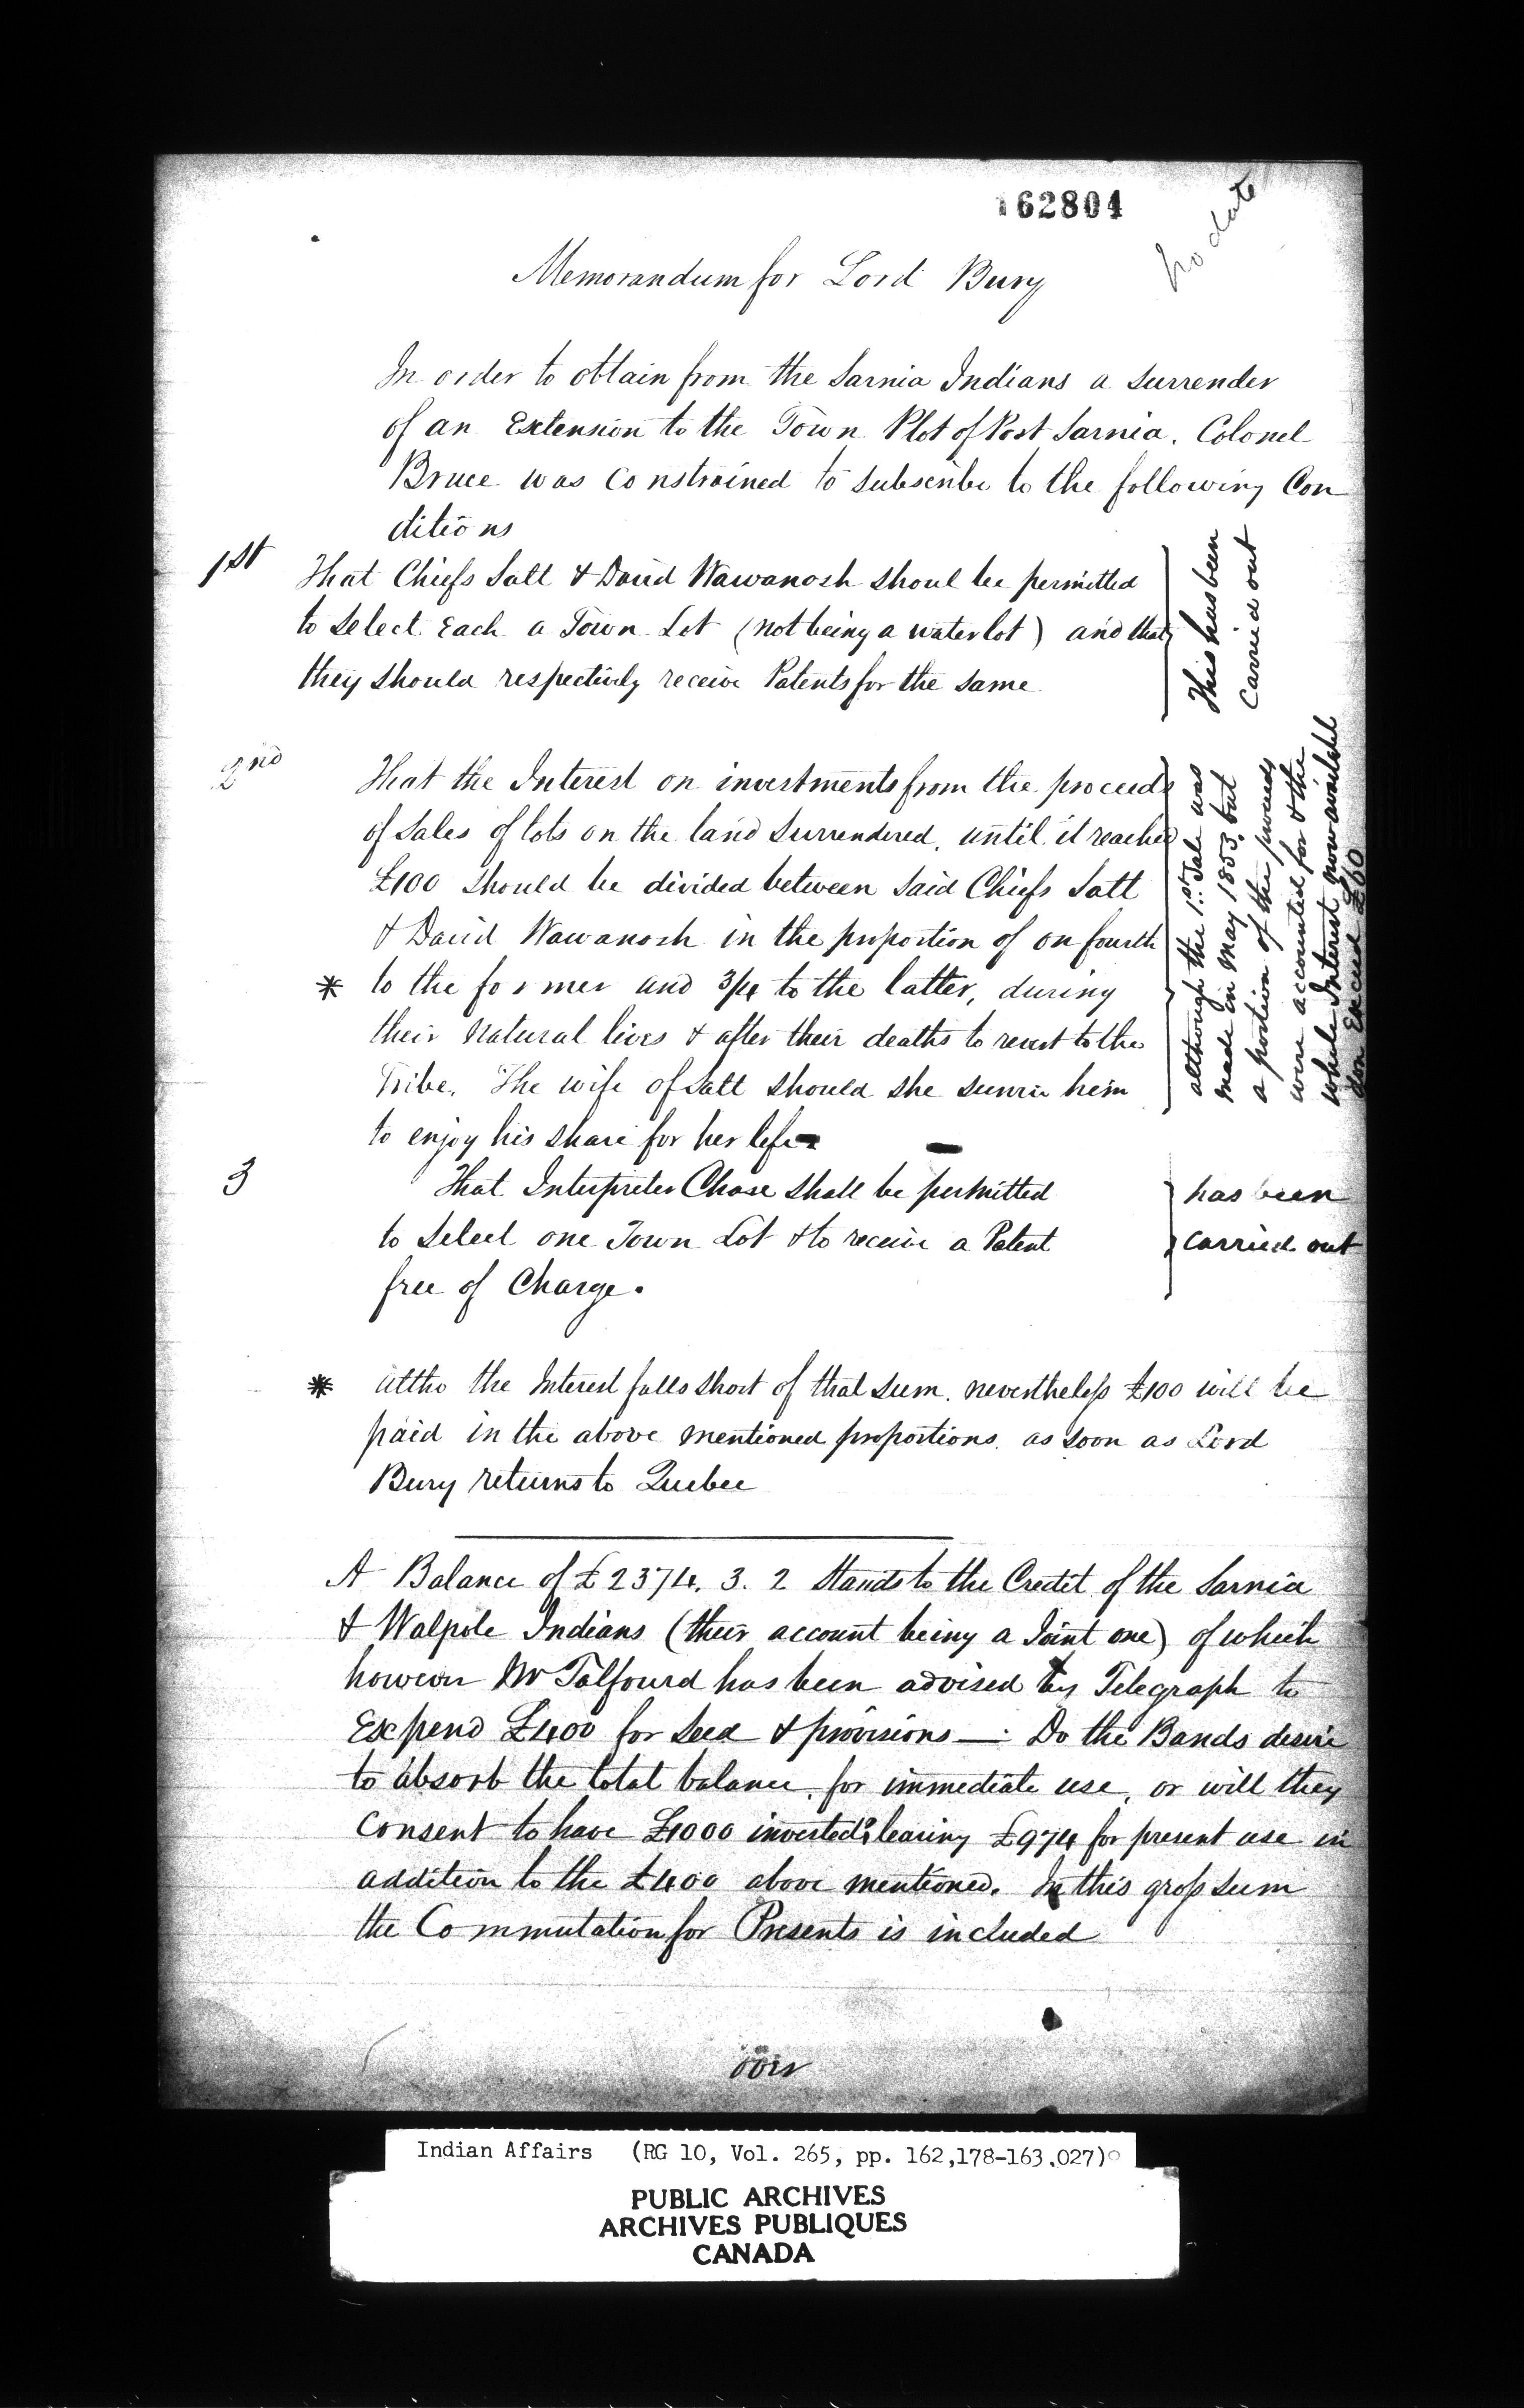 162804
no date
Memorandum for Lord Bury
In order to obtain from the Sarnia Indians a surrender
of an Extension to the Town Plot of Port Sarnia. Colonel
Bruce was constrained to subscribe to the following Con
ditions
1st That Chiefs Salt & David Wawanosh shoul be permitted
to select Each a Town Lot (not being a water lot) and that
they should respectively receive Patents for the same
This has been
carried out
2nd That the Interest on investments from the proceeds
of sales of lots on the land surrendered, until it reached
£100 should be divided between said Chiefs Salt
& David Wawanosh in the proportion of on fourth
* to the former and 3/4 to the latter, during
their natural lives & after their deaths to revert to the
Tribe. The wife of Salt should she survive him
to enjoy his share for her life
although the 1st Sale was
made in May 1853, but
a portion of the proceeds
were accounted for & the
whole Interest now availabl
don Exceed £60
3 That Interpreter Chase shall be permitted
to select one Town Lot & to receive a Patent
free of Charge.
has been
carried out
* altho the Interest falls short of that sum. nevertheless £100 will be
paid in the above mentioned proportions. as soon as Lord
Bury returns to Quebec
A Balance of £2374. 3. 2 Stands to the Credit of the Sarnia
& Walpole Indians (their account being a Joint one) of which
however Mr Talfourd has been advised by Telegraph to
Expend £400 for seed & provisions —: Do the Bands desire
to absorb the total balance, for immediate use, or will they
consent to have £1000 invested; leaving £974 for present use in
addition to the £400 above mentioned. In this gross sum
the Commutation for Presents is included
Indian Affairs (RG 10, Vol. 265, pp. 162,178-163,027)
PUBLIC ARCHIVES
ARCHIVES PUBLIQUES
CANADA